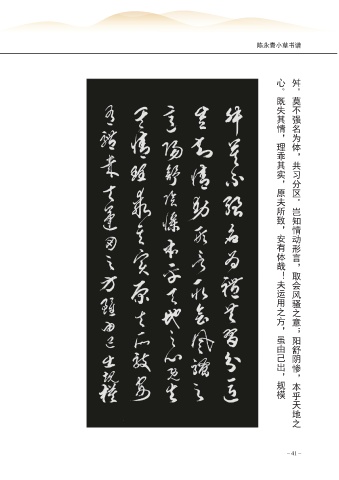 陈永贵小草书谱
舛，莫不强名为体，共习分区。岂知情动形言，取会风骚之意；阳舒阴惨，本乎天地之
心。既失其情，理乖其实，原夫所致，安有体哉！夫运用之方，虽由己出，规模
舛莫不强名为体共习分区
岂知情动形言取会风骚之
意阳舒阴惨本乎天地之心既失
其情理乖其实原夫所致安
有体哉夫运用之方虽由己出规模
- 41 -